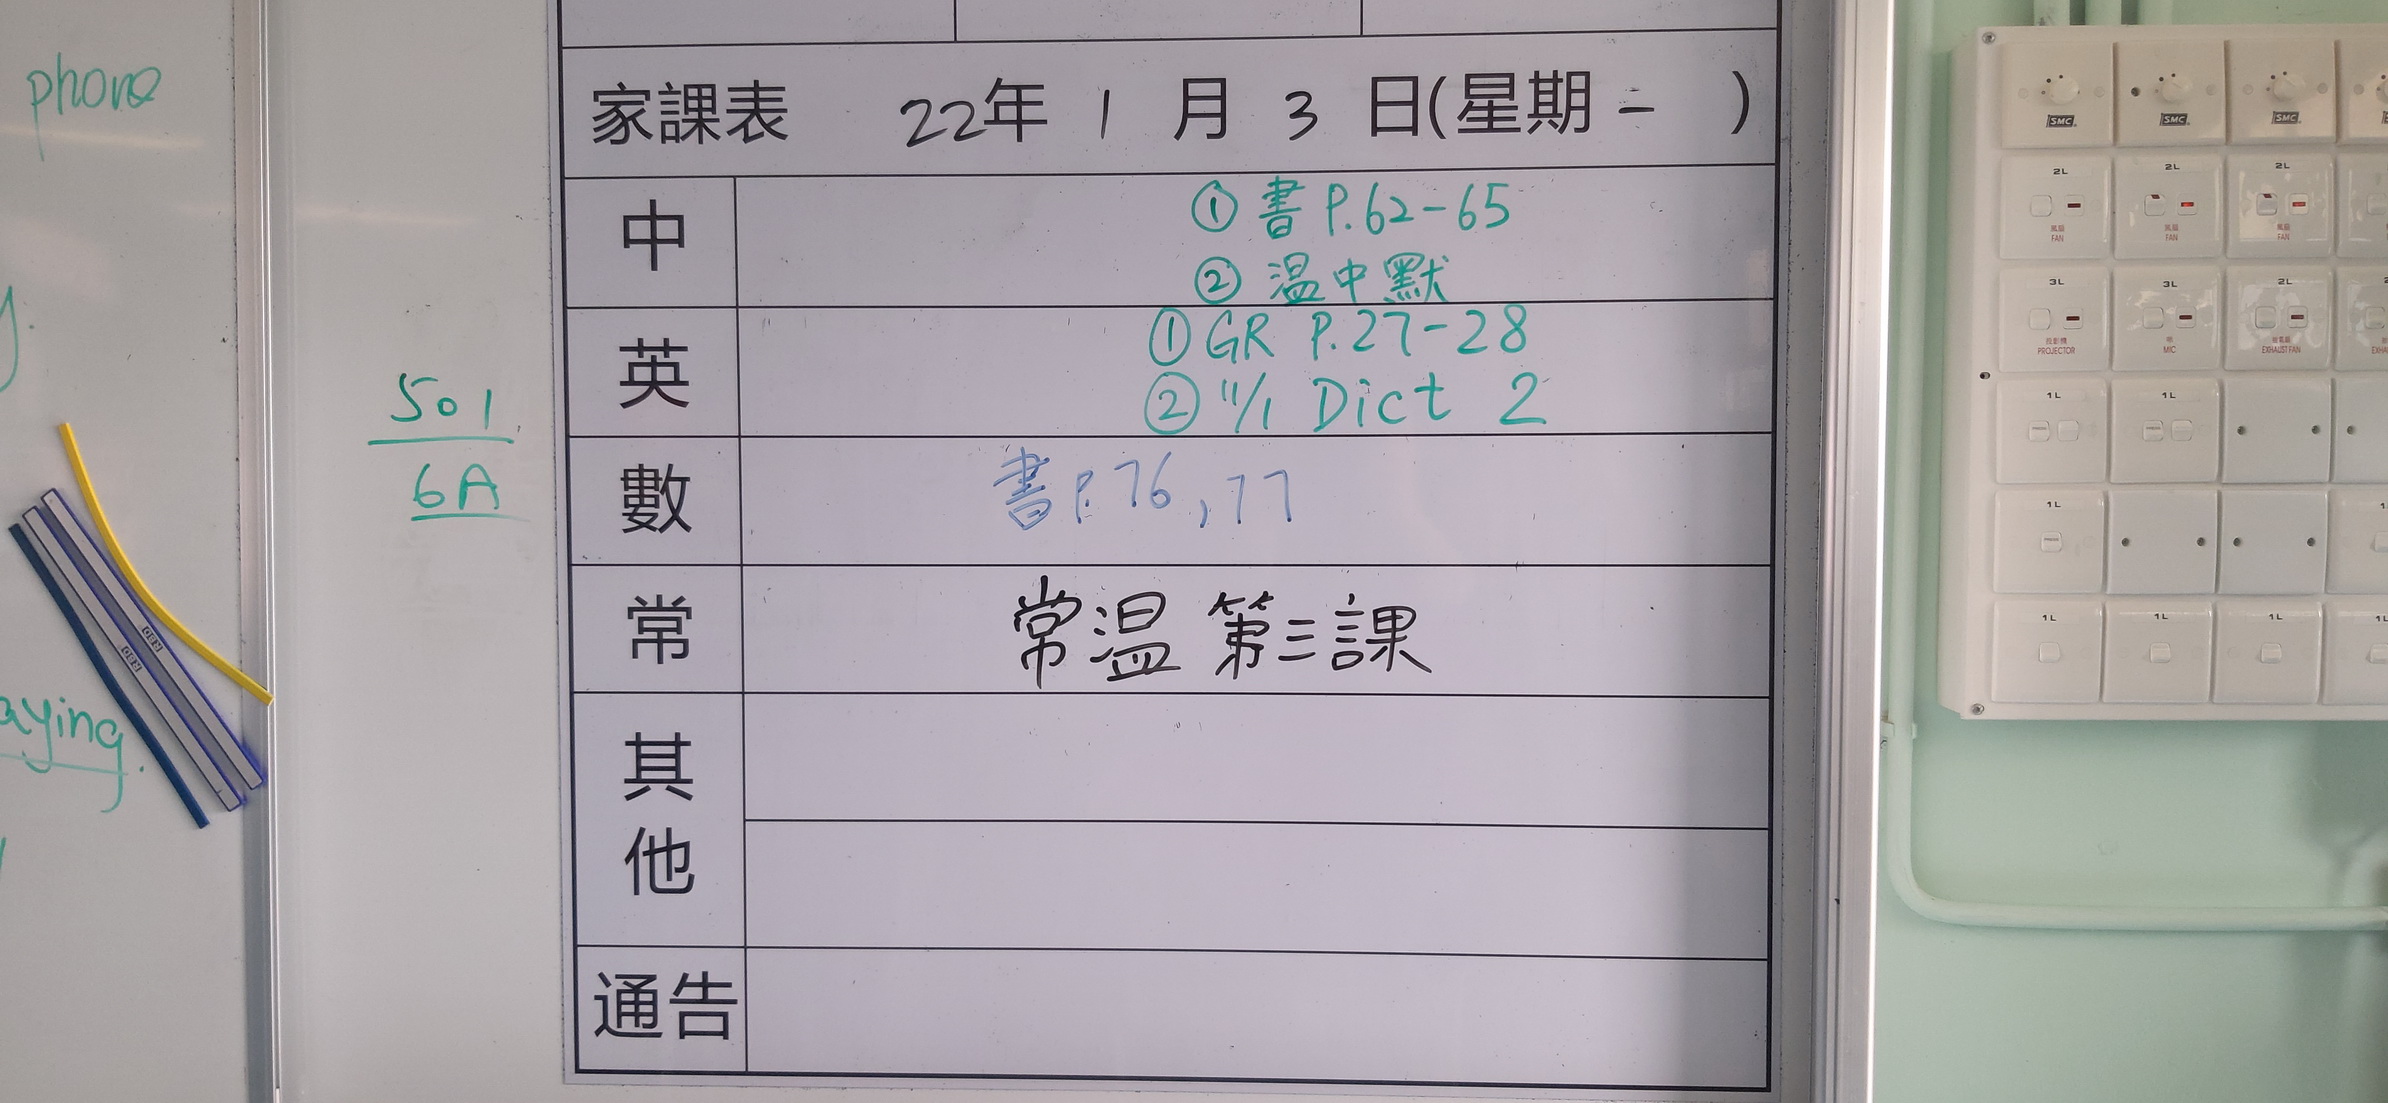 phone
y.
aying.
501
6A
家課表 22年 1 月 3 日(星期一 )
中
① 書 P.62-65
② 温中默
英
① GR P.27-28
② 11/1 Dict 2
數
書 P.76,77
常
常温 第三課
其他
通告
RBD
RBD
SMC SMC SMC
2L 2L 2L
風扇 風扇 風扇
FAN FAN FAN
3L 3L 2L
投影機
PROJECTOR MIC EXHAUST FAN
1L 1L
1L
1L 1L 1L